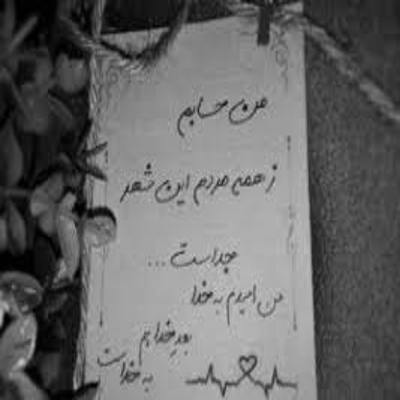 من حسابم
ز همه مردم این شهر
جداست...
من امیدم به خدا
بعدِ خدا هم
به خداست